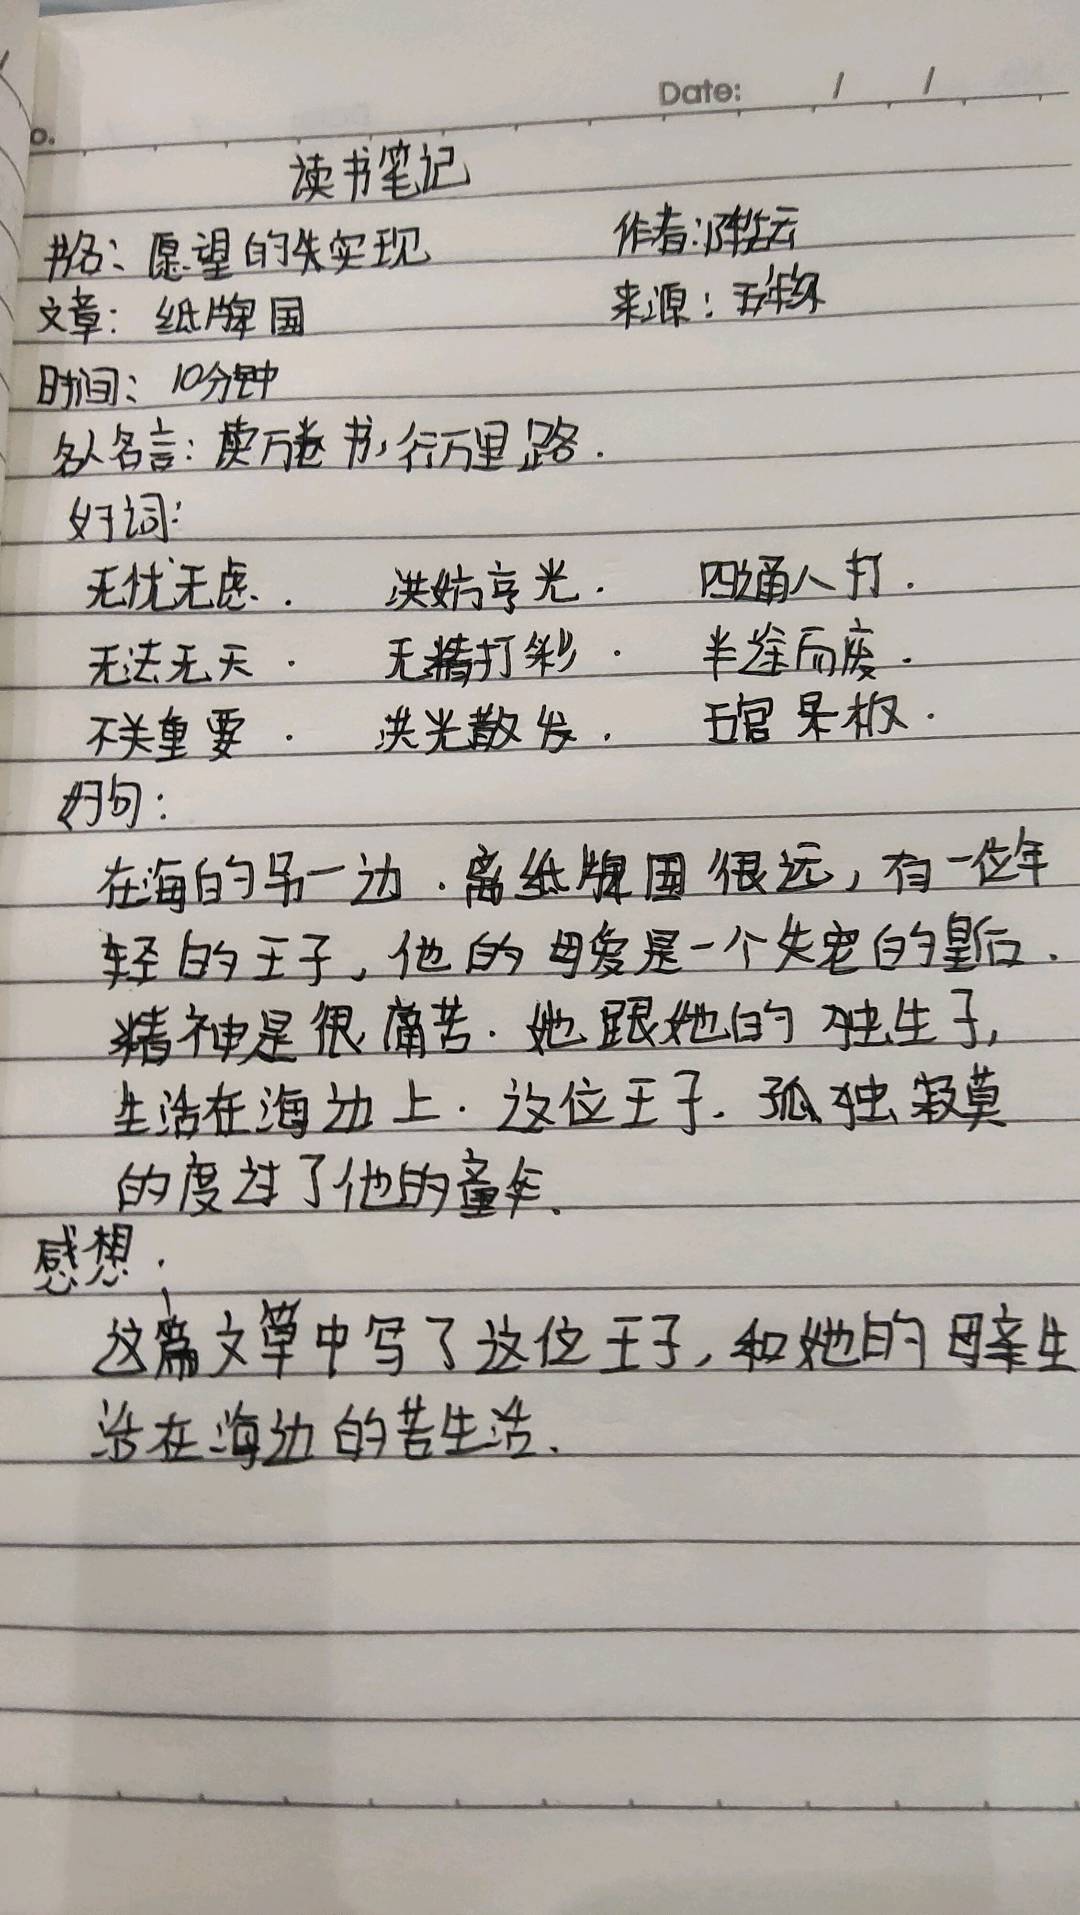 Date: / /
o.
读书笔记
书名:愿望的失实现 作者:
文章:纸牌国 来源:
时间:10分钟
名人名言:读万卷书,行万里路.
好词:
无忧无虑. 四通人打.
无法无天. 无精打彩. 半途而废.
不关重要. 洪光散发. 五官呆板.
好句:
在海的另一边.离纸牌国很远,有一位年
轻的王子,他的母爱是一个失宠的皇后.
精神是很痛苦.她跟她的独生子,
生活在海边上.这位王子.孤独寂莫
的度过了他的童年.
感想:
这篇文章中写了这位王子,和她的母亲生
活在海边的苦生活.